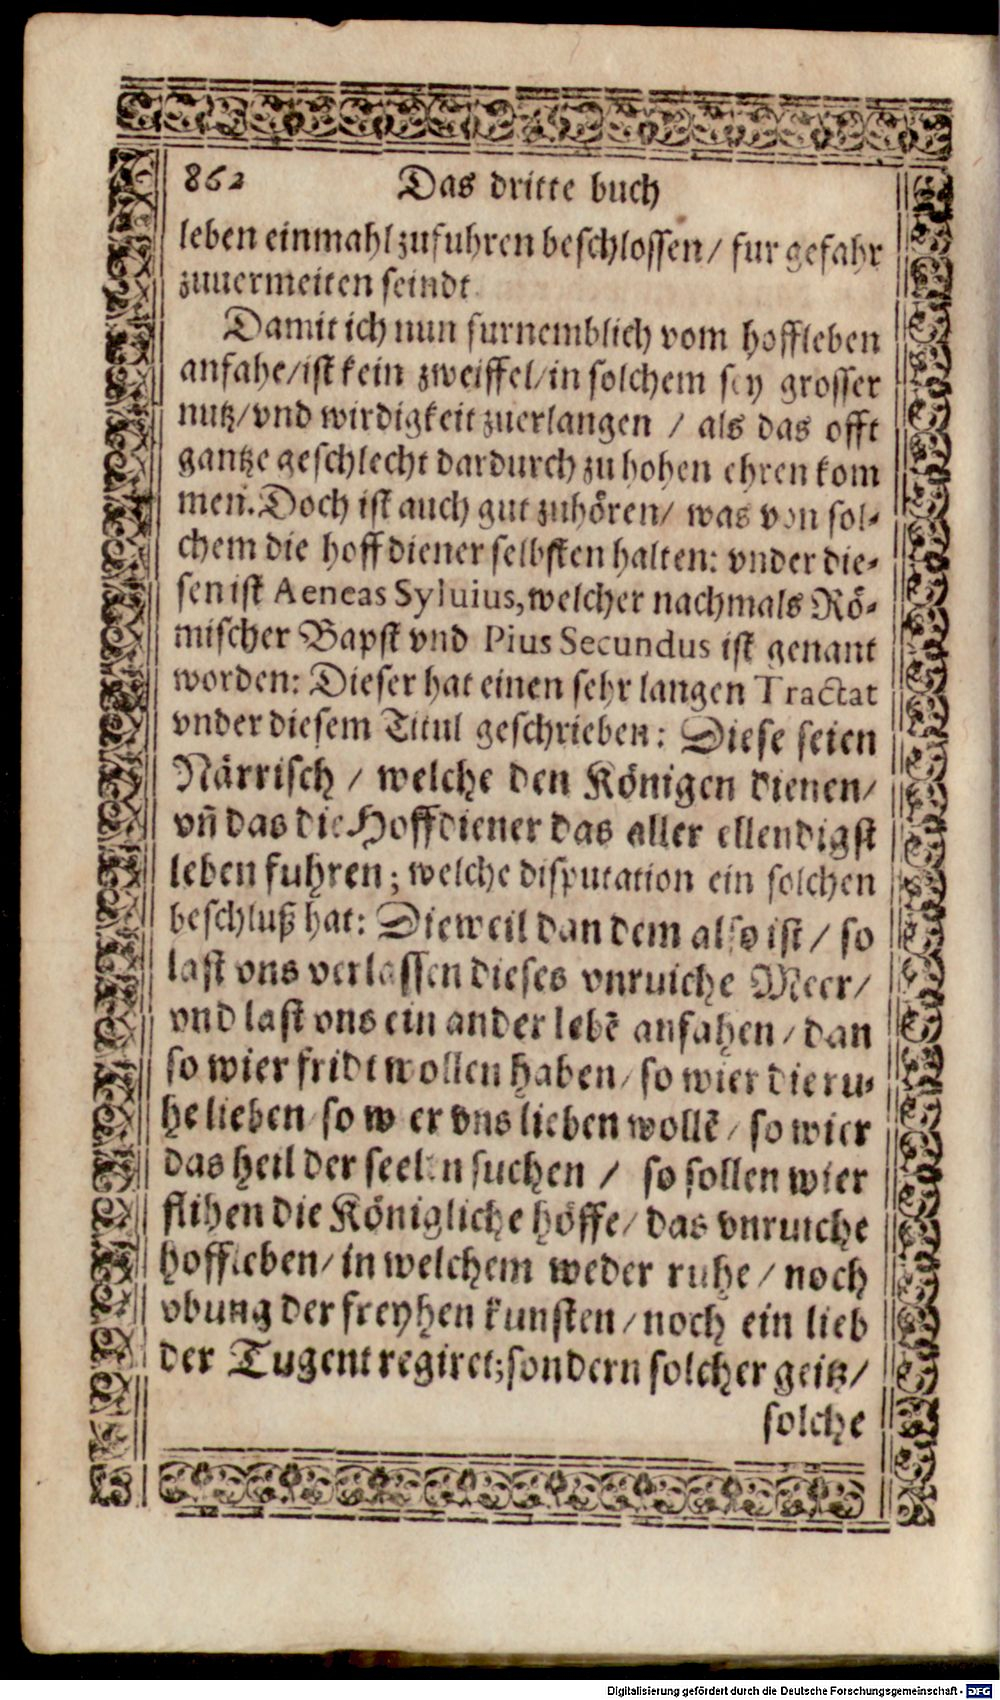 862 Das dritte buch
leben einmahl zufuhren beschlossen/ fur gefahr
zuuermeiten seindt
Damit ich nun furnemblich vom hoffleben
anfahe/ist kein zweiffel/in solchem sey grosser
nutz/vnd wirdigkeit zuerlangen / als das offt
gantze geschlecht dardurch zu hohen ehren kom
men. Doch ist auch gut zuhören/ was von sol-
chem die hoffdiener selbsten halten: vnder die-
sen ist Aeneas Syluius, welcher nachmals Rö-
mischer Bapst vnd Pius Secundus ist genant
worden: Dieser hat einen sehr langen Tractat
vnder diesem Titul geschrieben: Diese seien
Närrisch / welche den Königen dienen/
vñ das die Hoffdiener das aller ellendigst
leben fuhren; welche disputation ein solchen
beschluß hat: Dieweil dan dem also ist / so
last vns verlassen dieses vnruiche Meer/
vnd last vns ein ander lebē anfahen/ dan
so wier fridt wollen haben/ so wier die ru-
he lieben/ so wier vns lieben wollē/ so wier
das heil der seelen suchen / so sollen wier
flihen die Königliche höffe/ das vnruiche
hoffleben/ in welchem weder ruhe/ noch
vbung der freyhen kunsten/ noch ein lieb
der Tugent regiret; sondern solcher geitz/
solche
Digitalisierung gefördert durch die Deutsche Forschungsgemeinschaft - DFG